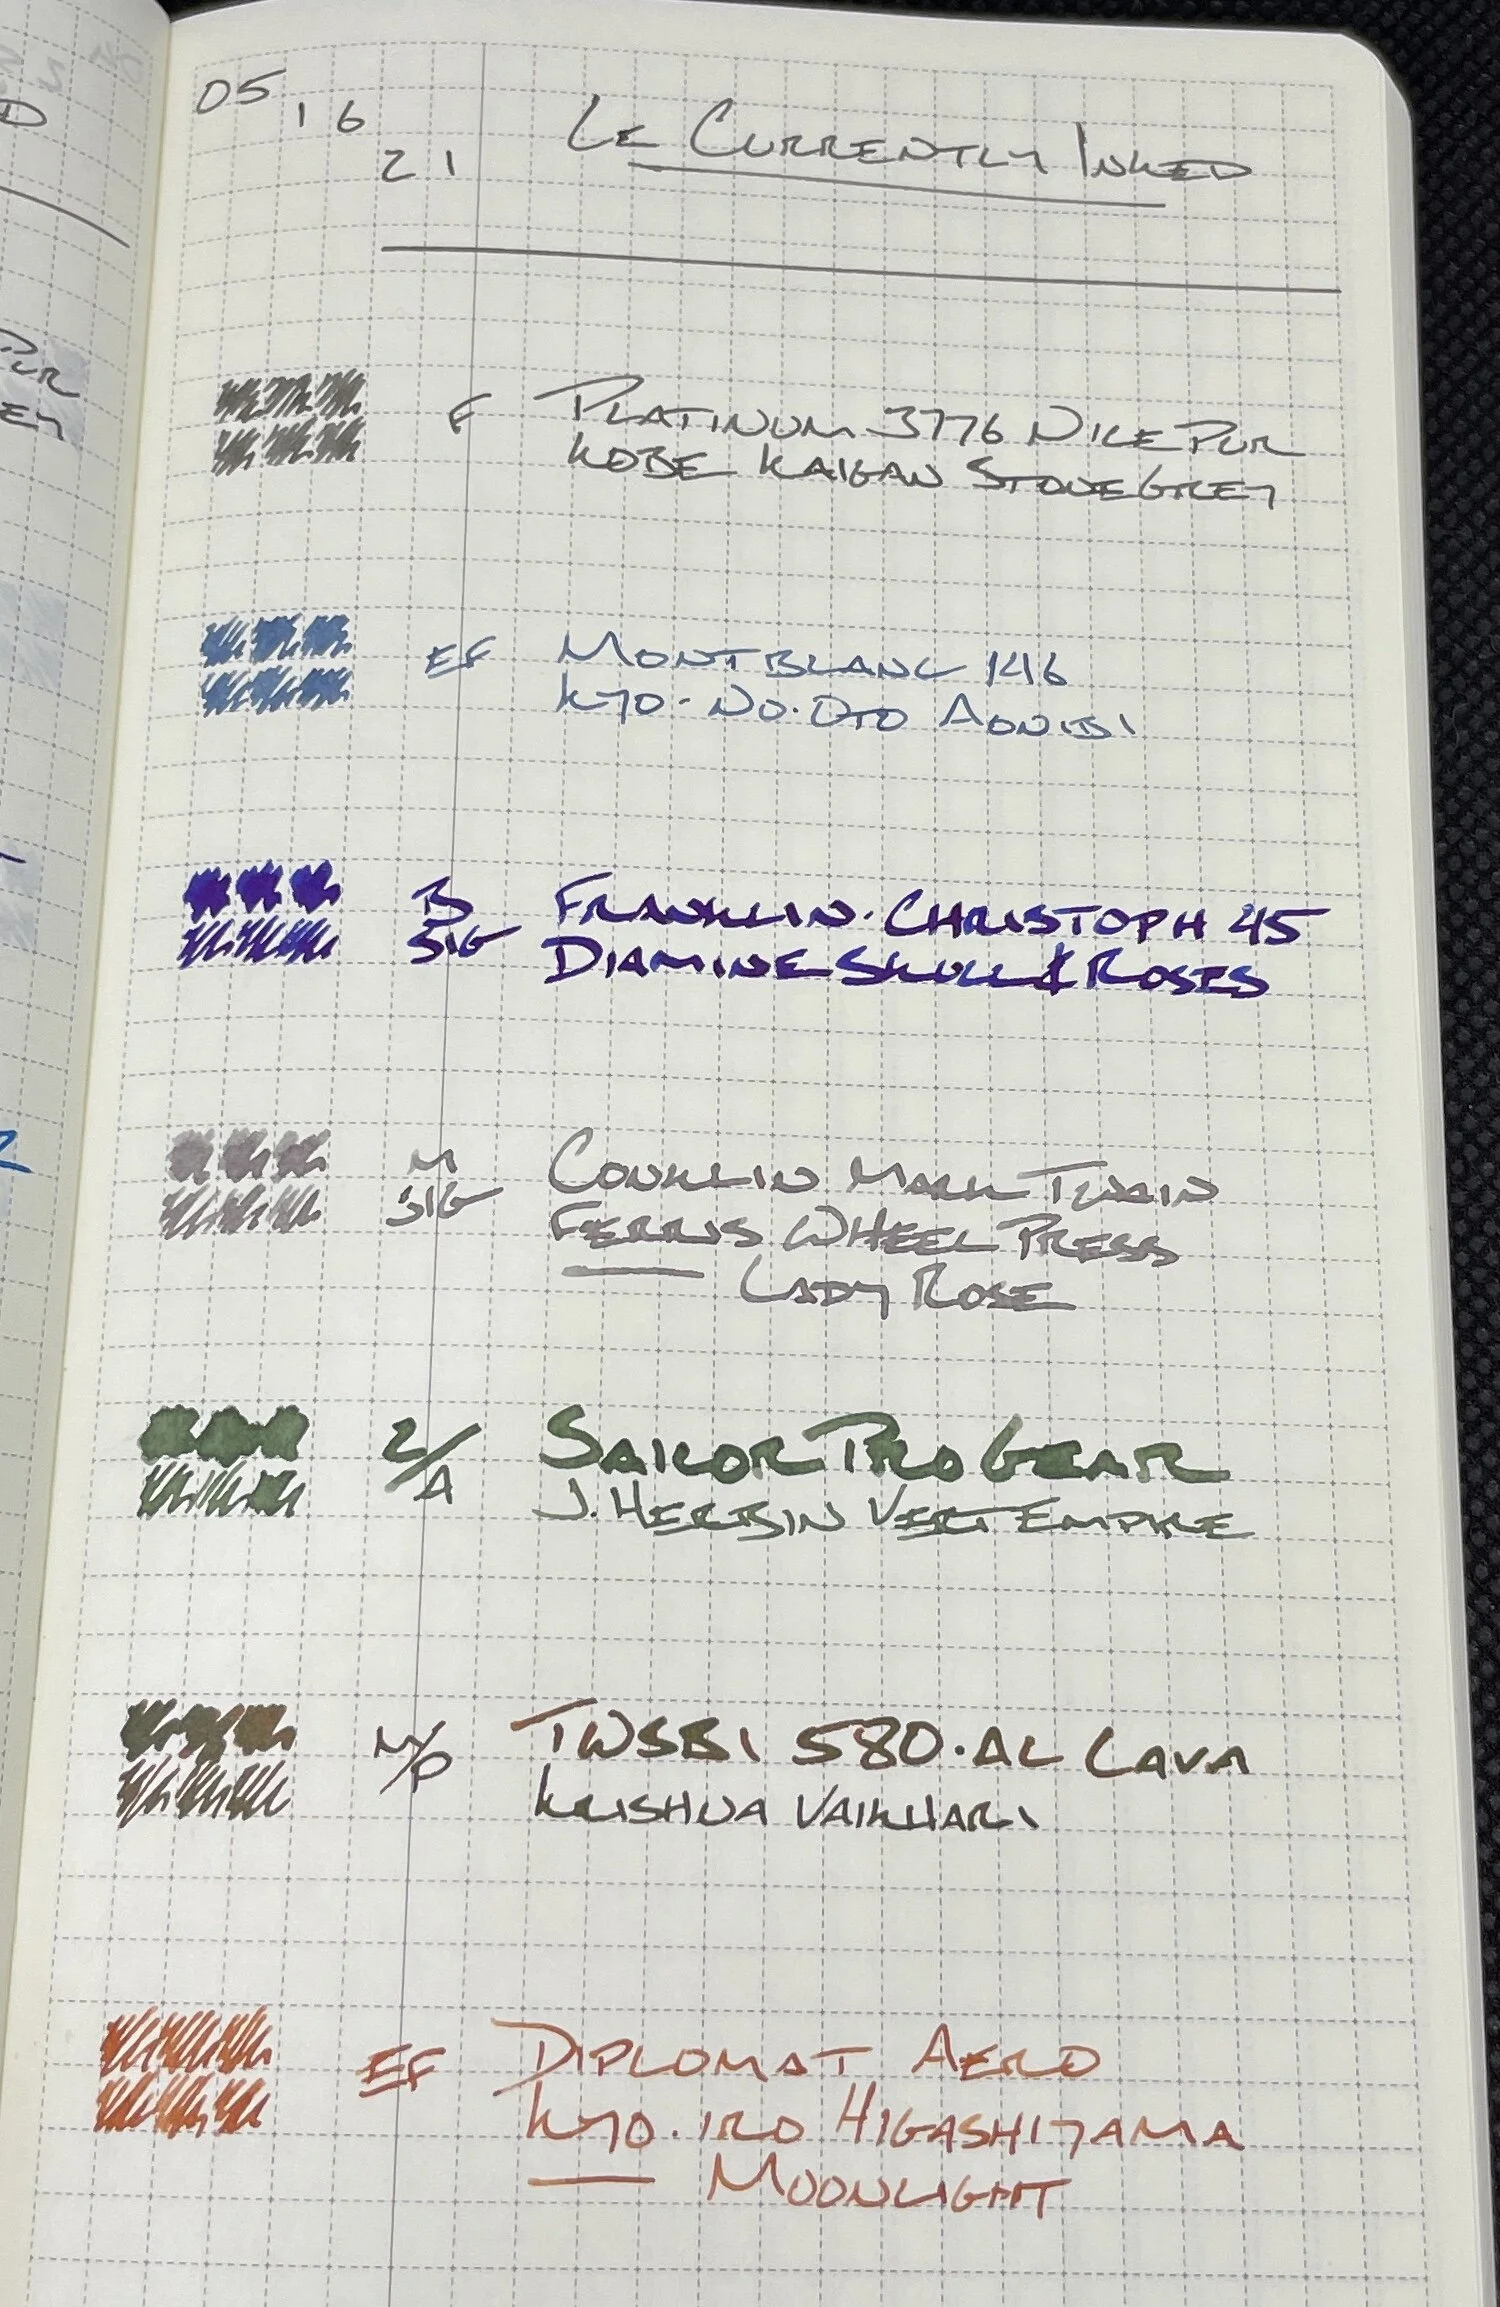 05
16
21
Le Currently Inked
F Platinum 3776 Nice Pur
Kobe Kaigan Stone Grey
EF Montblanc 146
Kyo-No-Oto Aonibi
B Franklin-Christoph 45
SIG Diamine Skull & Roses
M Conklin Mark Twain
SIG Ferris Wheel Press
Lady Rose
Z/A Sailor Pro Gear
J. Herbin Vert Empire
M/P TWSBI 580-AL Lava
Krishna Vaikhari
EF Diplomat Aero
Kyo-Iro Higashiyama
Moonlight